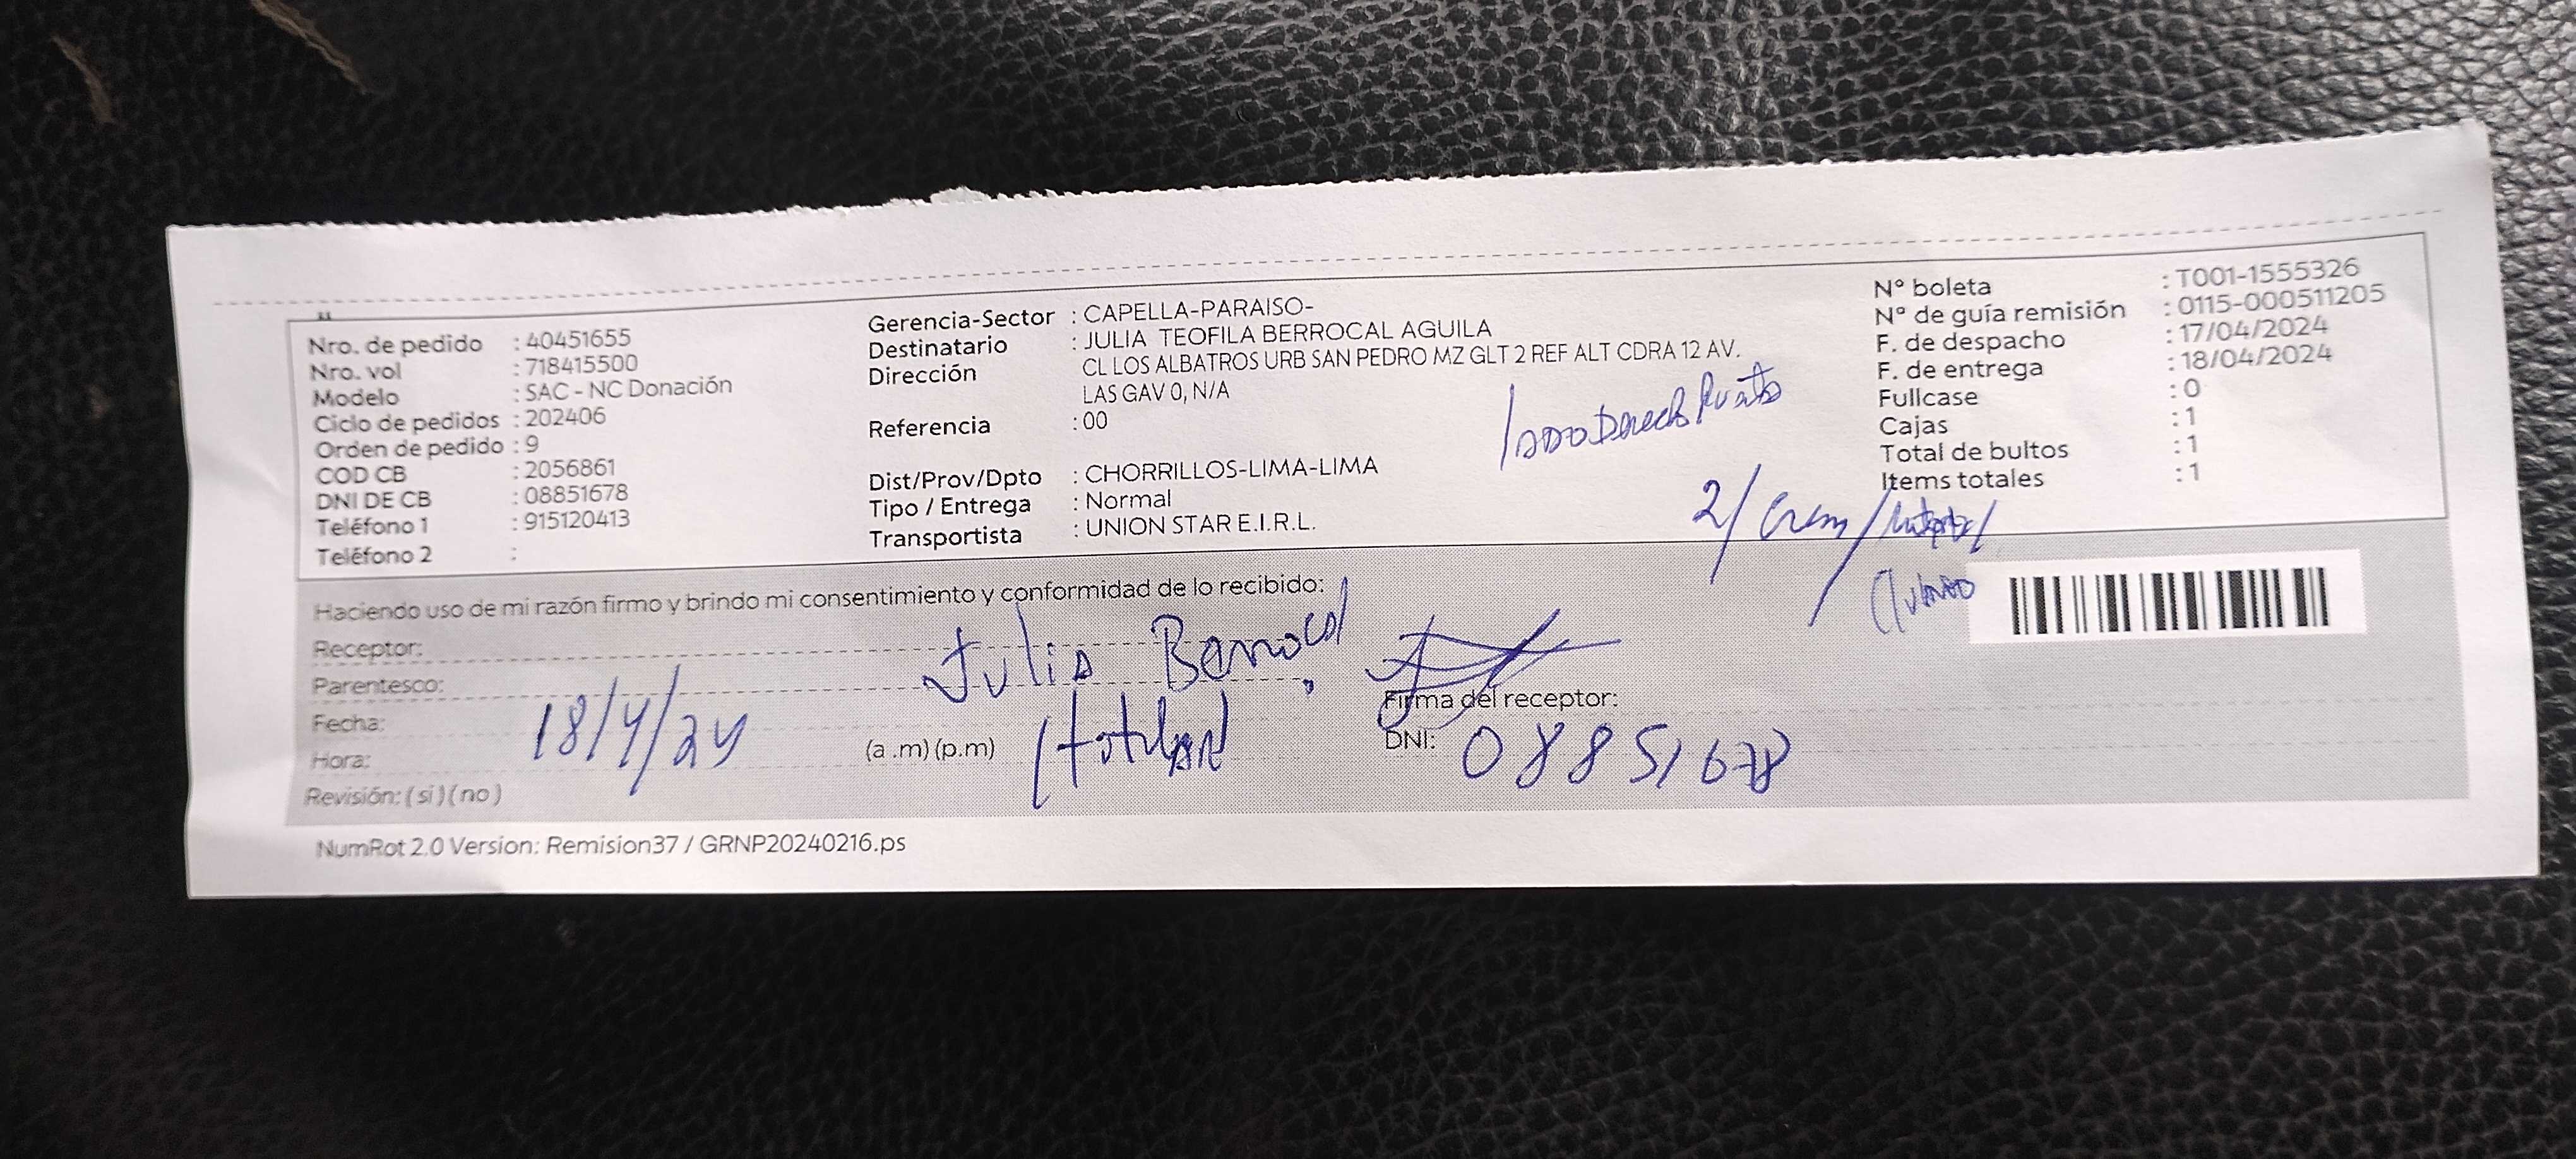 Nro. de pedido : 40451655
Nro. vol : 718415500
Modelo : SAC - NC Donación
Ciclo de pedidos : 202406
Orden de pedido : 9
COD CB : 2056861
DNI DE CB : 08851678
Teléfono 1 : 915120413
Teléfono 2 :
Gerencia-Sector : CAPELLA-PARAISO-
Destinatario : JULIA TEOFILA BERROCAL AGUILA
Dirección CL LOS ALBATROS URB SAN PEDRO MZ GLT 2 REF ALT CDRA 12 AV.
LAS GAV 0, N/A
Referencia : 00
Dist/Prov/Dpto : CHORRILLOS-LIMA-LIMA
Tipo / Entrega : Normal
Transportista : UNION STAR E.I.R.L.
N° boleta : T001-1555326
N° de guía remisión : 0115-000511205
F. de despacho : 17/04/2024
F. de entrega : 18/04/2024
Fullcase : 0
Cajas : 1
Total de bultos : 1
Items totales : 1
2/
Haciendo uso de mi razón firmo y brindo mi consentimiento y conformidad de lo recibido:
Receptor: Julia Berrocal
Parentesco:
Fecha: 18/4/24
Hora: (a .m) (p.m)
Revisión: ( si ) ( no )
Firma del receptor:
DNI: 08851678
NumRot 2.0 Version: Remision37 / GRNP20240216.ps